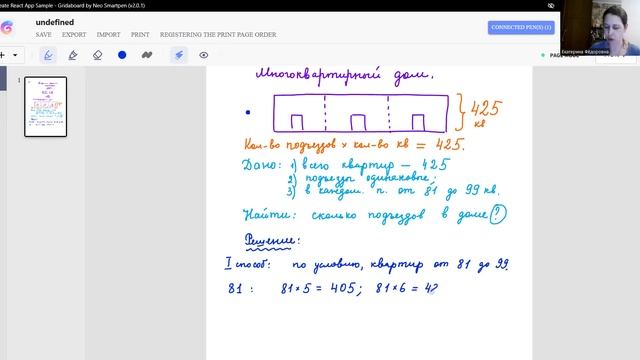 eate React App Sample - Gridaboard by Neo Smartpen (v2.0.1)
undefined
SAVE EXPORT IMPORT PRINT REGISTERING THE PRINT PAGE ORDER
CONNECTED PEN(S) (1)
Екатерина Фёдоровна
1
Многоквартирный дом.
425
кв
Кол-во подъездов × кол-во кв = 425.
Дано: 1) всего квартир — 425
2) подъезды одинаковые;
3) в каждом п. от 81 до 99 кв.
Найти: сколько подъездов в доме?
Решение:
I способ: по условию, квартир от 81 до 99.
81 : 81 × 5 = 405; 81 × 6 = 48